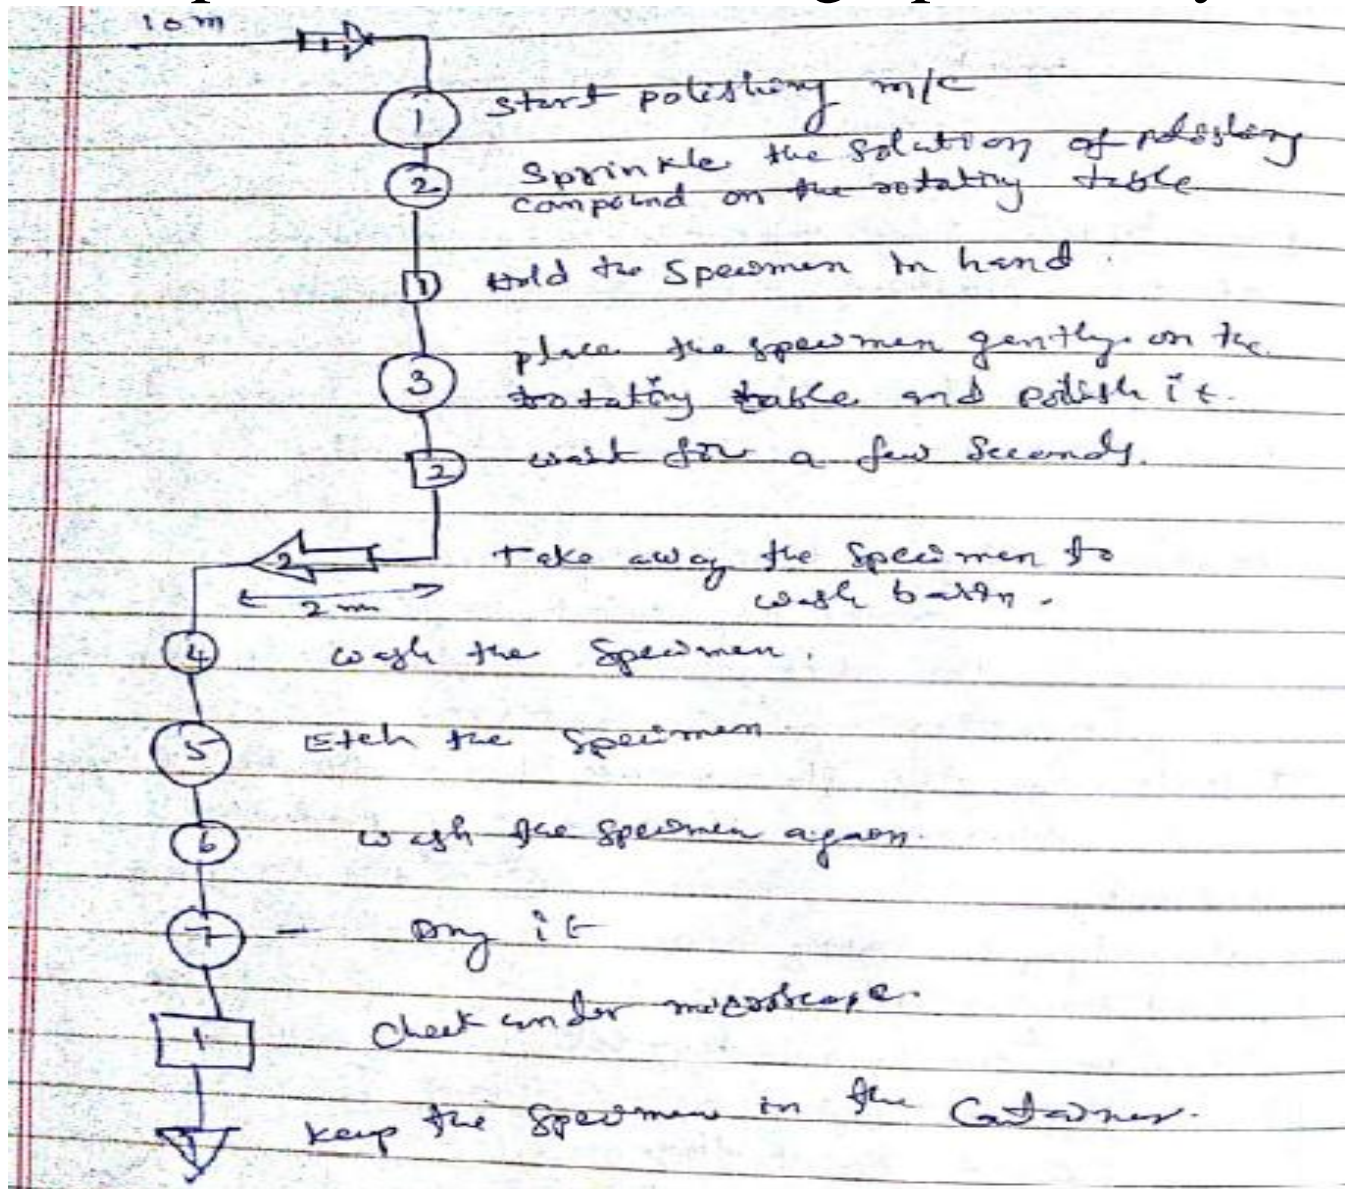 10 m
1
1 Start polishing m/c
2 Sprinkle the solution of polishing
compound on the rotating table
1 Hold the specimen in hand.
place the specimen gently on the
3 rotating table and polish it.
2 wait for a few seconds.
2 Take away the specimen to
wash basin.
2 m
4 wash the specimen.
5 Etch the specimen
6 wash the specimen again.
7 - Dry it
1 Check under microscope.
1 Keep the specimen in the Container.